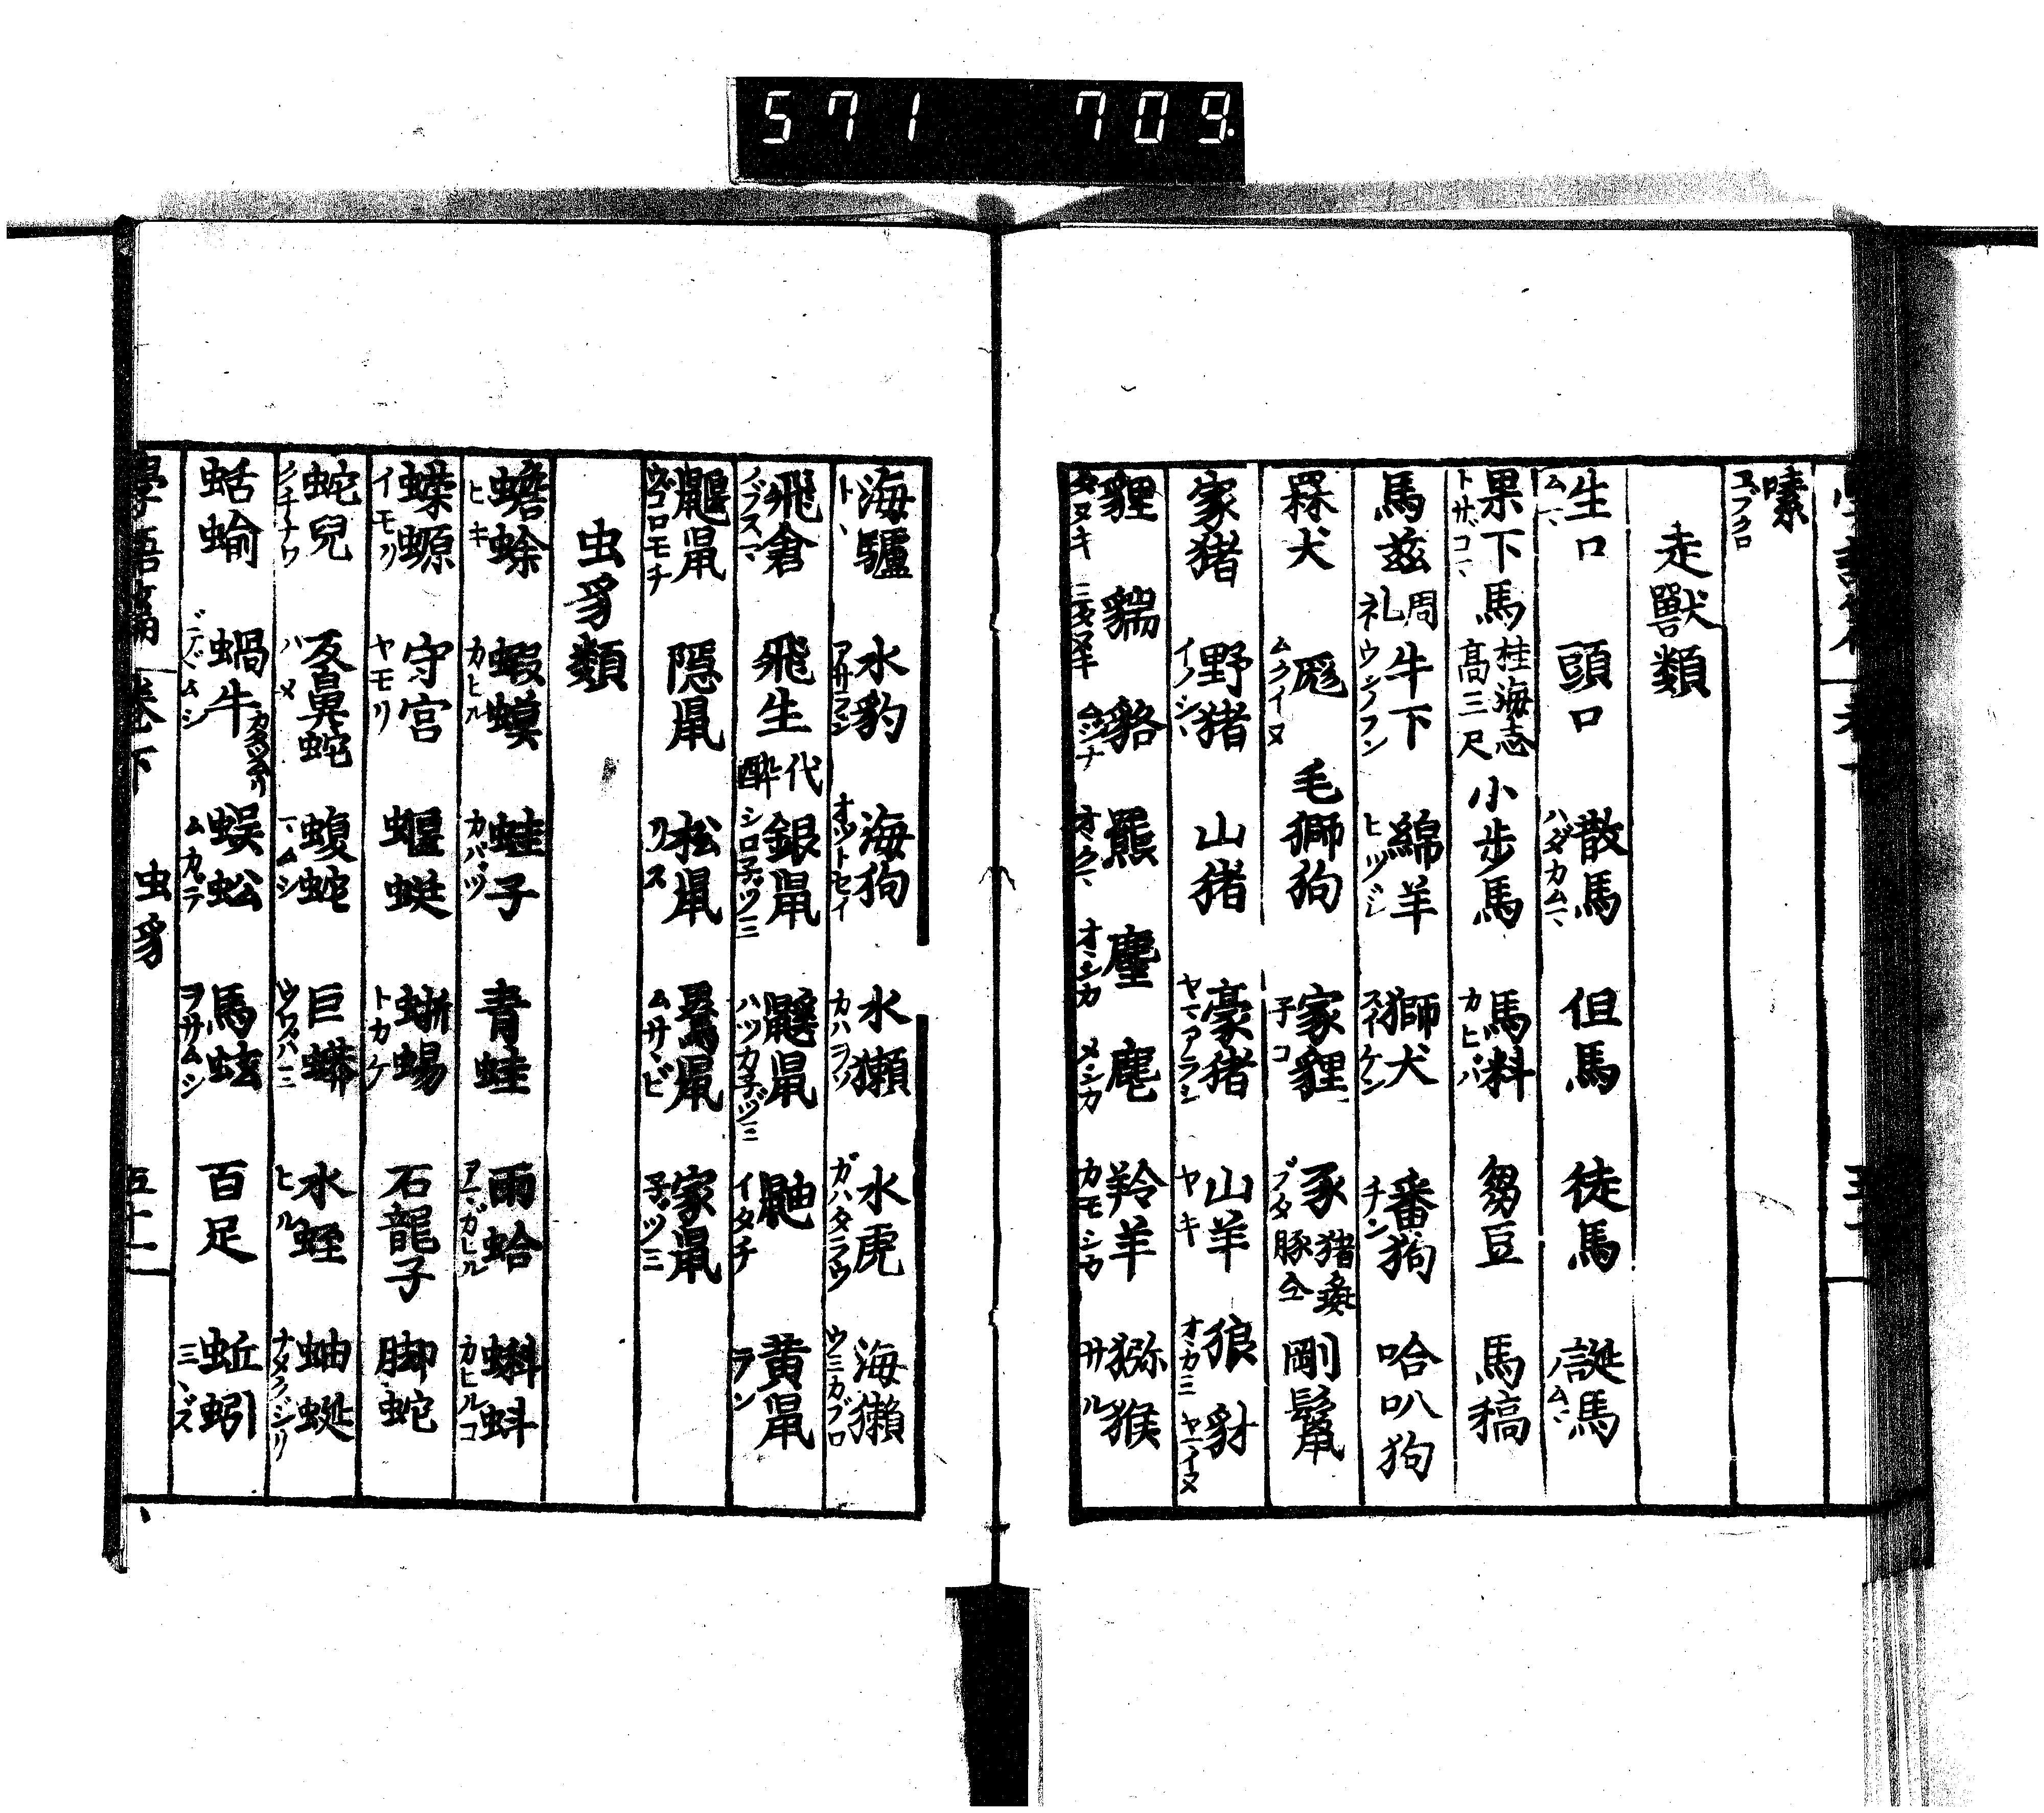 571 709.
嗉 ヱブクロ
走獸類
生口 ムマ 頭口 散馬 ハダカムマ 但馬 徒馬 誕馬 ノムマ
果下馬 トサゴマ 桂海志高三尺 小歩馬 馬料 カヒバ 芻豆 馬稿
馬兹 周礼 牛下 ウシノフン 綿羊 ヒツジ 獅犬 スイケン 番狗 チン 哈叭狗
猱犬 ムクイヌ 毛獅狗 家貍 子コ 豕 ブタ 猪彘豚仝 剛鬣
家猪 野猪 イノシヽ 山猪 豪猪 ヤマアラシ 山羊 ヤギ 狼 オカミ 豺 ヤマイヌ
貍 タヌキ 貒 ミタヌキ 貉 ムジナ 熊 オクマ 麈 オヽシカ 麀 メシカ 羚羊 カモシカ 猕猴 サル
海驢 トヾ 水豹 アザラシ 海狗 オツトセイ 水獺 カハヲソ 水虎 ガハタラウ 海獺 ウミカブロ
飛倉 ノブスマ 飛生 代酔 銀鼠 シロ子ヅミ 鼷鼠 ハツカ子ヅミ 鼬 イタチ 黄鼠 ラン
鼴鼠 ウゴロモチ 隠鼠 松鼠 リス 鼯鼠 ムサヽビ 家鼠 子ヅミ
虫豸類
蟾蜍 ヒキ 蝦蟆 カヒル 蛙子 カハヅ 青蛙 雨蛤 アマガヒル 蝌蚪 カヒルコ
蠑螈 イモリ 守宮 ヤモリ 蝘蜓 蜥蜴 トカケ 石龍子 脚蛇
蛇兒 クチナワ 反鼻蛇 ハメ 蝮蛇 マムシ 巨蟒 ウワバミ 水蛭 ヒル 蚰蜒 ナメクジリ
蛞蝓 蝸牛 デデムシ カタツムリ 蜈蚣 ムカデ 馬蚿 ヲサムシ 百足 蚯蚓 ミヽズ
學語編 卷下 虫豸 五十一